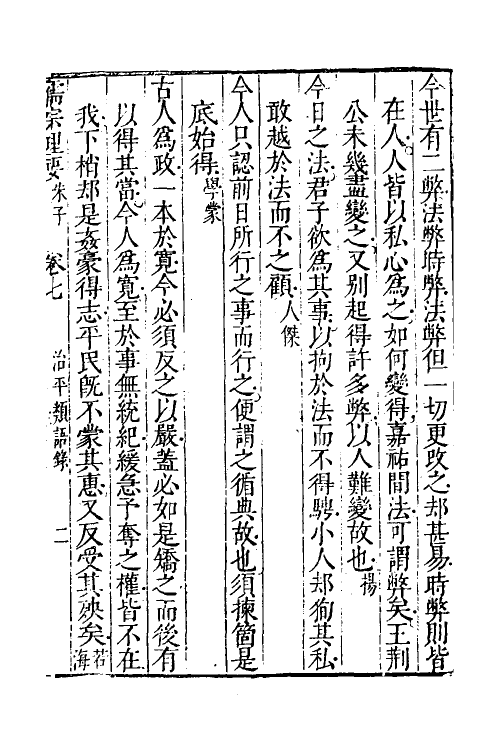 今世有二弊法弊時弊法弊但一切更改之却甚易時弊則皆
在人人皆以私心爲之如何變得嘉祐間法可謂弊矣王荆
公未幾盡變之又别起得許多弊以人難變故也揚
今日之法君子欲爲其事以拘於法而不得騁小人却徇其私
敢越於法而不之顧人傑
今人只認前日所行之事而行之便謂之循典故也須揀箇是
底始得學蒙
古人爲政一本於寛今必須反之以嚴蓋必如是矯之而後有
以得其當今人爲寛至於事無統紀緩急予奪之權皆不在
我下梢却是姦豪得志平民旣不蒙其惠又反受其殃矣若海
儒宗理要朱子 卷七 治平類語錄 二